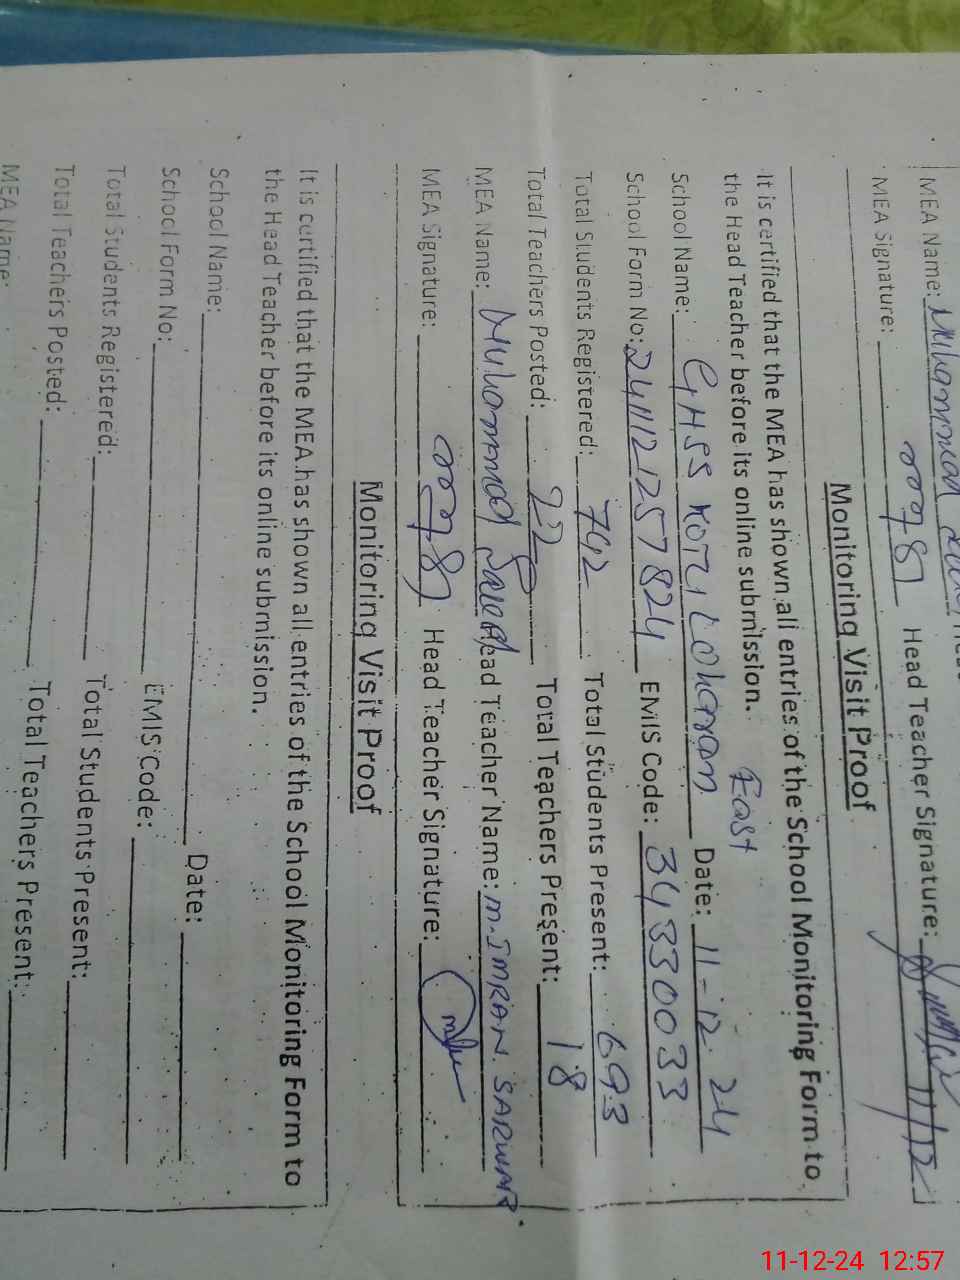 MEA Name: Muhammad
MEA Signature: Head Teacher Signature: 11/12
Monitoring Visit Proof
It is certified that the MEA has shown all entries of the School Monitoring Form to
the Head Teacher before its online submission.
East
School Name: GHSS Kotli Loharan Date: 11-12-24
School Form No: 24111211257824 EMIS Code: 34330033
Total Students Registered: 742 Total Students Present: 693
Total Teachers Posted: 22 Total Teachers Present: 18
MEA Name: Muhammad Saeed Head Teacher Name: M. IMRAN. SARWAR
MEA Signature: Head Teacher Signature:
Monitoring Visit Proof
It is certified that the MEA has shown all entries of the School Monitoring Form to
the Head Teacher before its online submission.
School Name: Date:
School Form No: EMIS Code:
Total Students Registered: Total Students Present:
Total Teachers Posted: Total Teachers Present:
MEA Name:
11-12-24 12:57